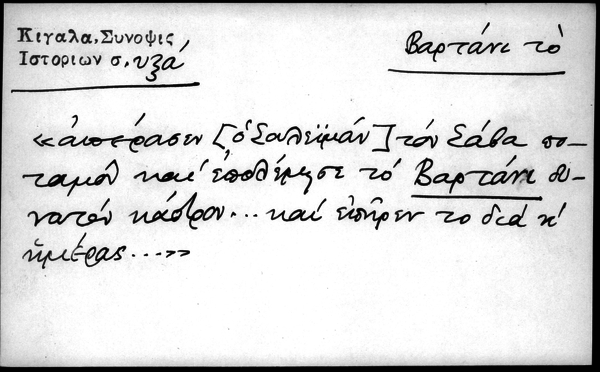 Κιγαλα, Συνοψις
Ιστοριων σ. υξα´
Βαρτάνι τὸ
«ἀπέρασεν [ὁ Σαλεϊμάν] τὸν Σάβα πο-
ταμὸν καὶ ἐπολέμησε τὸ Βαρτάνι δυ-
νατὸν κάστρον... καὶ ἐπῆρεν το διὰ κ´
ἡμέρας ...»